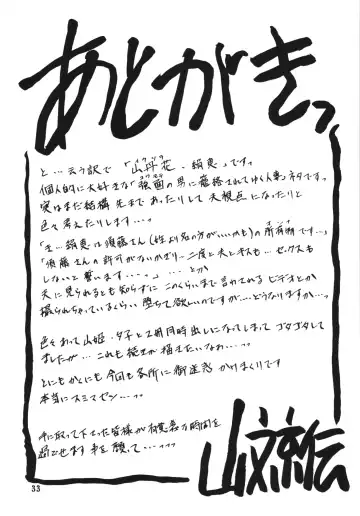 あとがきっ
と…云う訳で「山丹花・絹恵」ですっ
個人的に大好きな「狼面の男に篭絡されてゆく人妻」ネタですっ
実はまだ結構先まであったりして夫視点になったりと
色々考えたりします…っ
「絹恵は須藤さん(姓より名の方がいいかも)の所有物です…」
「須藤さんの許可がないかぎり二度と夫とキスも…セックスも
しないと誓います…。」……とか
夫に見られるとも知らずにこのくらいまで言わされるビデオとか
撮られちゃっているくらい堕ちて欲しいのですが…どうなりますか…っ
色々あって山姫・夕子と2冊同時出しになってしまってゴタゴタして
ましたが…これも続きが描きたいなぁ…っ
とにもかくにも今回も各所に御迷惑かけまくりです
本当にスミマセン…っ
手に取って下さった皆様が有意義な時間を
過ごせます事を願って…っっ
山文京伝
33